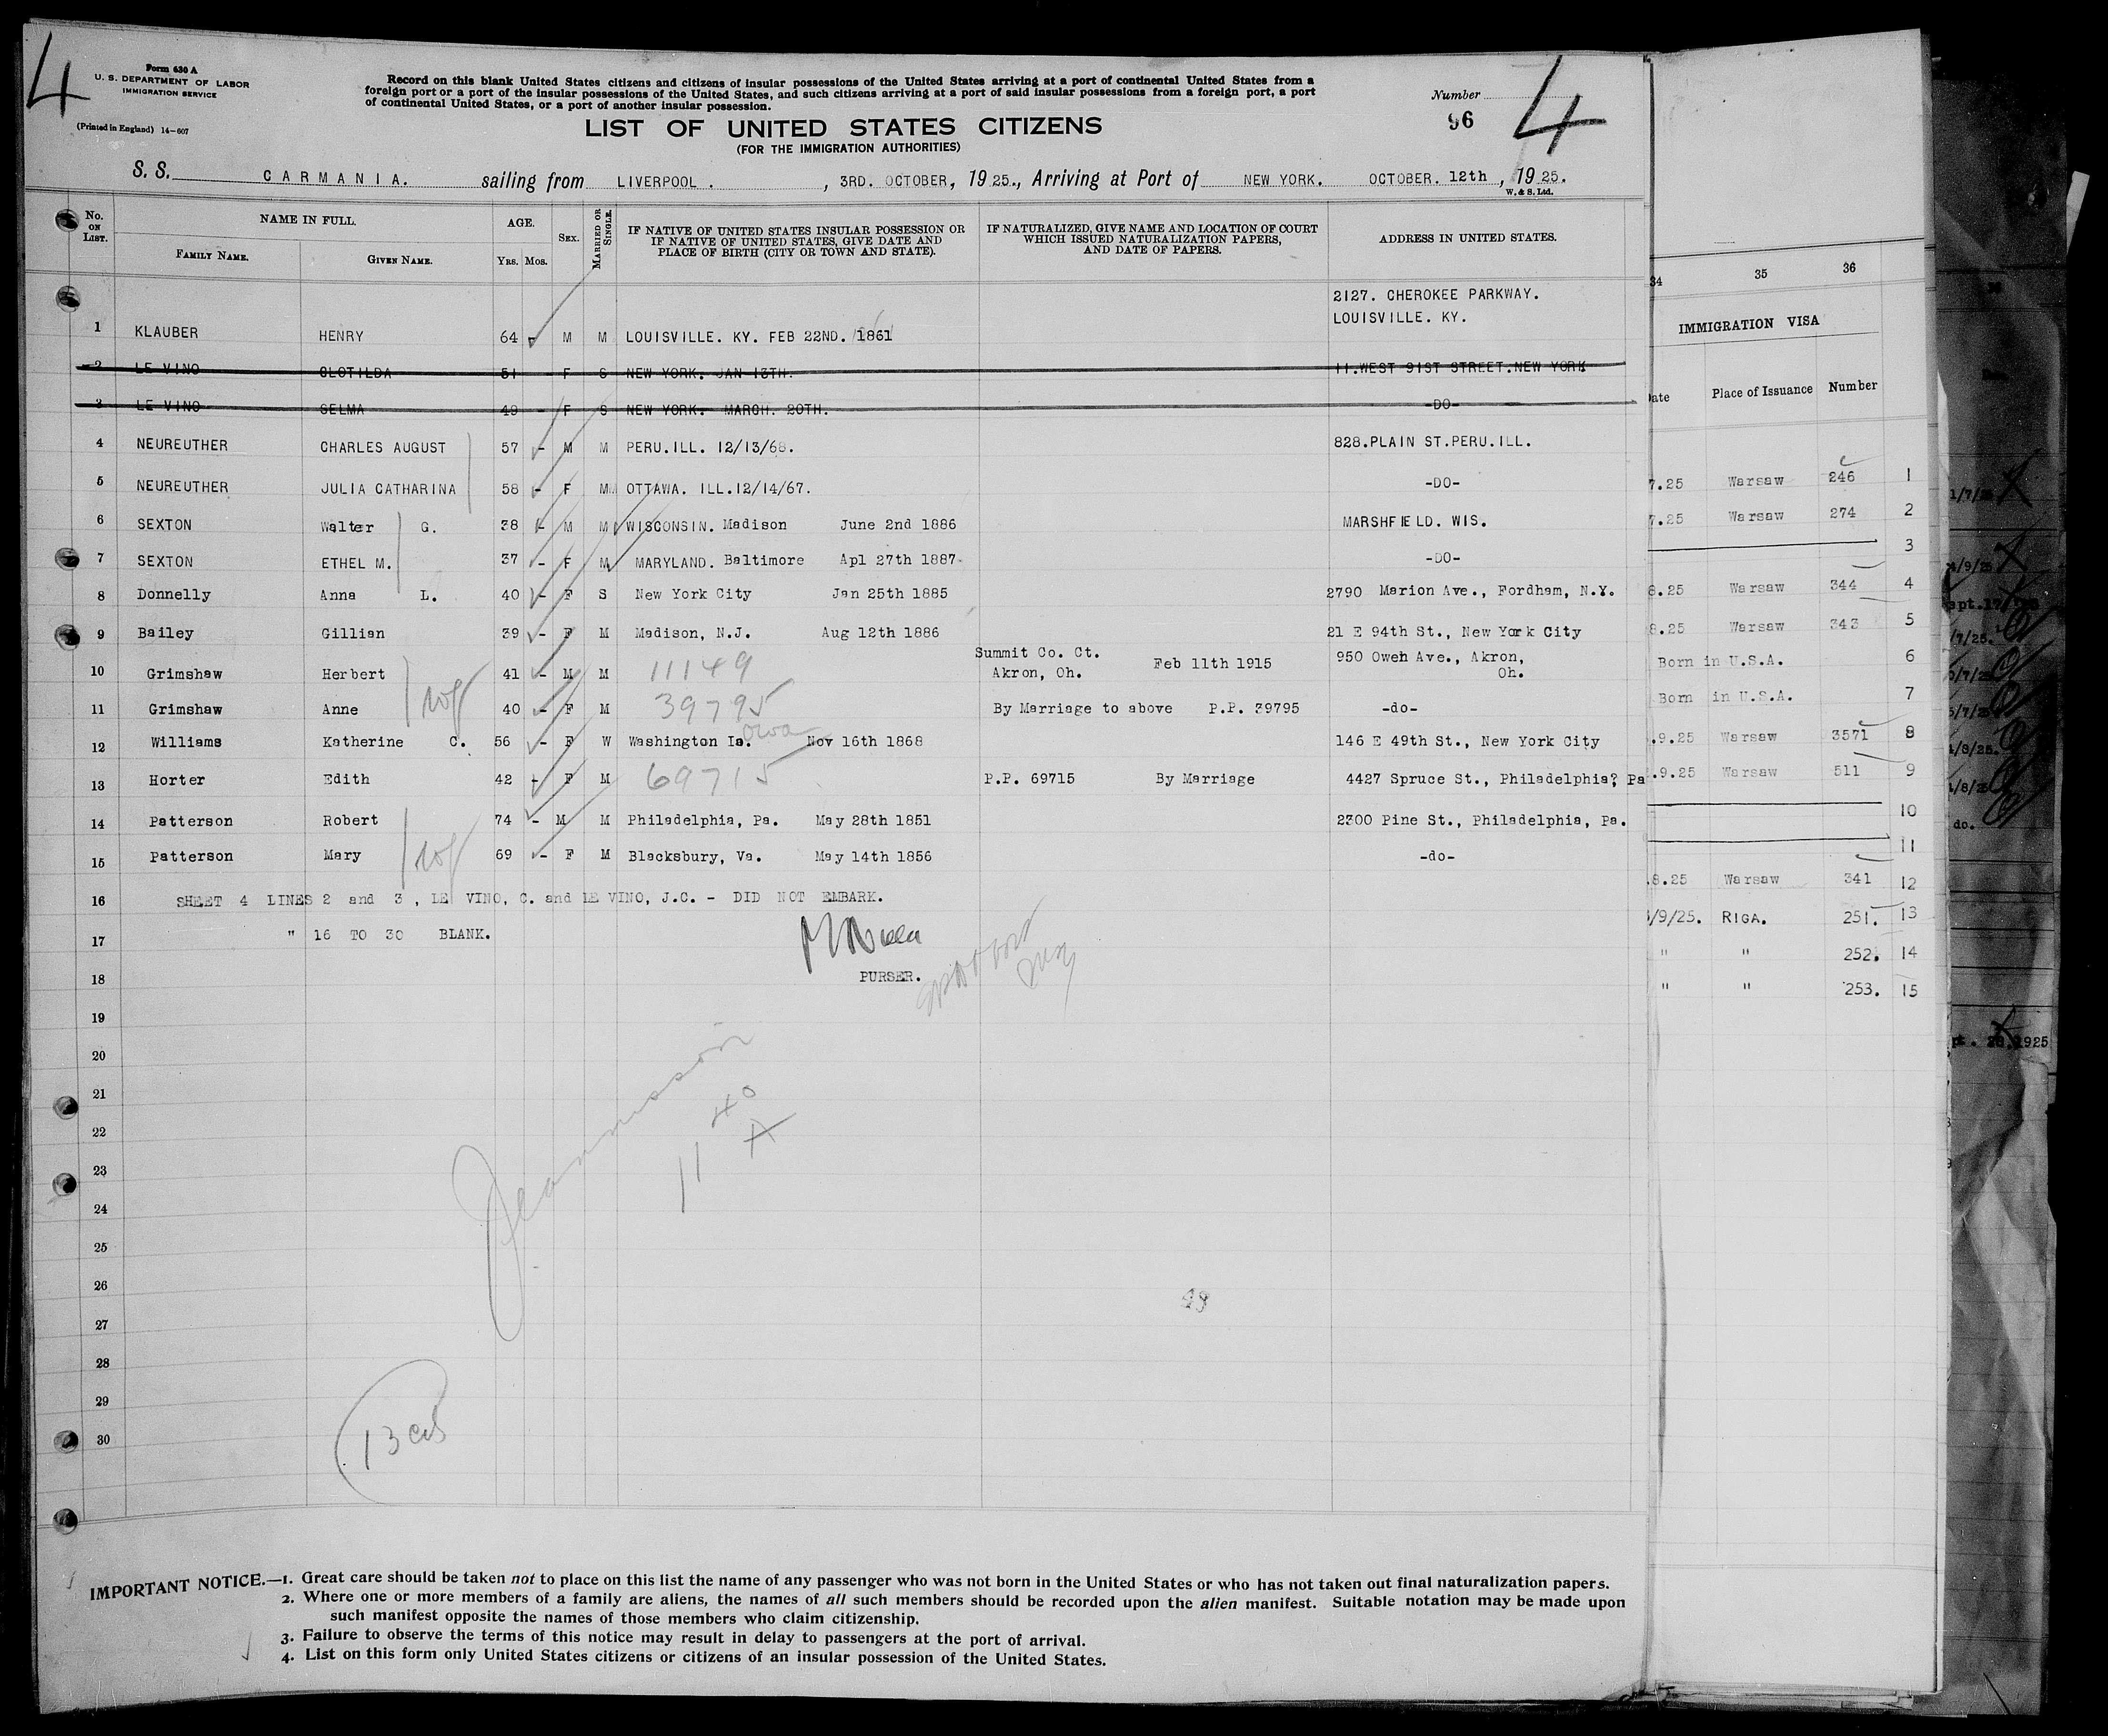 4
Form 630 A
U. S. DEPARTMENT OF LABOR
IMMIGRATION SERVICE
(Printed in England) 14-607
Record on this blank United States citizens and citizens of insular possessions of the United States arriving at a port of continental United States from a
foreign port or a port of the insular possessions of the United States, and such citizens arriving at a port of said insular possessions from a foreign port, a port
of continental United States, or a port of another insular possession.
Number
96
4
LIST OF UNITED STATES CITIZENS
(FOR THE IMMIGRATION AUTHORITIES)
S. S. CARMANIA. sailing from LIVERPOOL. , 3RD. OCTOBER, 1925., Arriving at Port of NEW YORK. OCTOBER. 12th, 1925.
W. & S. Ltd.
No. ON LIST. NAME IN FULL. AGE. SEX. MARRIED OR SINGLE. IF NATIVE OF UNITED STATES INSULAR POSSESSION OR IF NATIVE OF UNITED STATES, GIVE DATE AND PLACE OF BIRTH (CITY OR TOWN AND STATE). IF NATURALIZED, GIVE NAME AND LOCATION OF COURT WHICH ISSUED NATURALIZATION PAPERS, AND DATE OF PAPERS. ADDRESS IN UNITED STATES.
FAMILY NAME. GIVEN NAME. YRS. MOS.
2127. CHEROKEE PARKWAY.
LOUISVILLE. KY.
1 KLAUBER HENRY 64 M M LOUISVILLE. KY. FEB 22ND. 1861
2 LE VINO CLOTILDA 51 - F S NEW YORK. JAN 13TH. 11.WEST 91ST STREET.NEW YORK
3 LE VINO SELMA 49 - F S NEW YORK. MARCH. 20TH. -DO-
4 NEUREUTHER CHARLES AUGUST 57 - M M PERU.ILL. 12/13/68. 828.PLAIN ST.PERU.ILL.
5 NEUREUTHER JULIA CATHARINA 58 - F M OTTAWA. ILL.12/14/67. -DO-
6 SEXTON Walter G. 38 - M M WISCONSIN. Madison June 2nd 1886 MARSHFIELD. WIS.
7 SEXTON ETHEL M. 37 - F M MARYLAND. Baltimore Apl 27th 1887 -DO-
8 Donnelly Anna L. 40 - F S New York City Jan 25th 1885 2790 Marion Ave., Fordham, N.Y.
9 Bailey Gillian 39 - F M Madison, N.J. Aug 12th 1886 21 E 94th St., New York City
10 Grimshaw Herbert 41 - M M 11149 Summit Co. Ct. Akron, Oh. Feb 11th 1915 950 Owen Ave., Akron, Oh.
11 Grimshaw Anne 40 - F M 39795 By Marriage to above P.P. 39795 -do-
12 Williams Katherine C. 56 - F W Washington Ia. Nov 16th 1868 146 E 49th St., New York City
13 Horter Edith 42 - F M 69715 P.P. 69715 By Marriage 4427 Spruce St., Philadelphia? Pa
14 Patterson Robert 74 - M M Philadelphia, Pa. May 28th 1851 2300 Pine St., Philadelphia, Pa.
15 Patterson Mary 69 - F M Blacksbury, Va. May 14th 1856 -do-
16 SHEET 4 LINES 2 and 3, LE VINO, C. and LE VINO, J.C. - DID NOT EMBARK.
17 " 16 TO 30 BLANK.
18 PURSER.
19
20
21
22
23
24
25
26
27
28
29
30
11 40 A
13
IMPORTANT NOTICE.—1. Great care should be taken not to place on this list the name of any passenger who was not born in the United States or who has not taken out final naturalization papers.
2. Where one or more members of a family are aliens, the names of all such members should be recorded upon the alien manifest. Suitable notation may be made upon
such manifest opposite the names of those members who claim citizenship.
3. Failure to observe the terms of this notice may result in delay to passengers at the port of arrival.
4. List on this form only United States citizens or citizens of an insular possession of the United States.
34 35 36
IMMIGRATION VISA
Date Place of Issuance Number
7.25 Warsaw 246 1
7.25 Warsaw 274 2
3
8.25 Warsaw 344 4
8.25 Warsaw 343 5
Born in U.S.A. 6
Born in U.S.A. 7
.9.25 Warsaw 3571 8
.9.25 Warsaw 511 9
10
11
.8.25 Warsaw 341 12
/9/25. RIGA. 251. 13
" " 252. 14
" " 253. 15